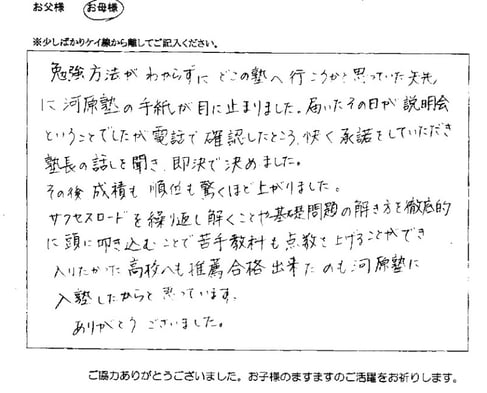 お父様 お母様
※少しばかりケイ線から離してご記入ください。
勉強方法がわからずにどこの塾へ行こうかと思っていた矢先
に河原塾の手紙が目に止まりました。届いたその日が説明会
ということでしたが電話で確認したところ、快く承諾をしていただき
塾長の話しを聞き、即決で決めました。
その後 成績も 順位も驚くほど上がりました。
サクセスロードを繰り返し解くことや基礎問題の解き方を徹底的
に頭に叩き込むことで苦手教科も点数を上げることができ
入りたかた高校へも推薦合格出来たのも河原塾に
入塾したからと思っています。
ありがとうございました。
ご協力ありがとうございました。お子様のますますのご活躍をお祈りします。